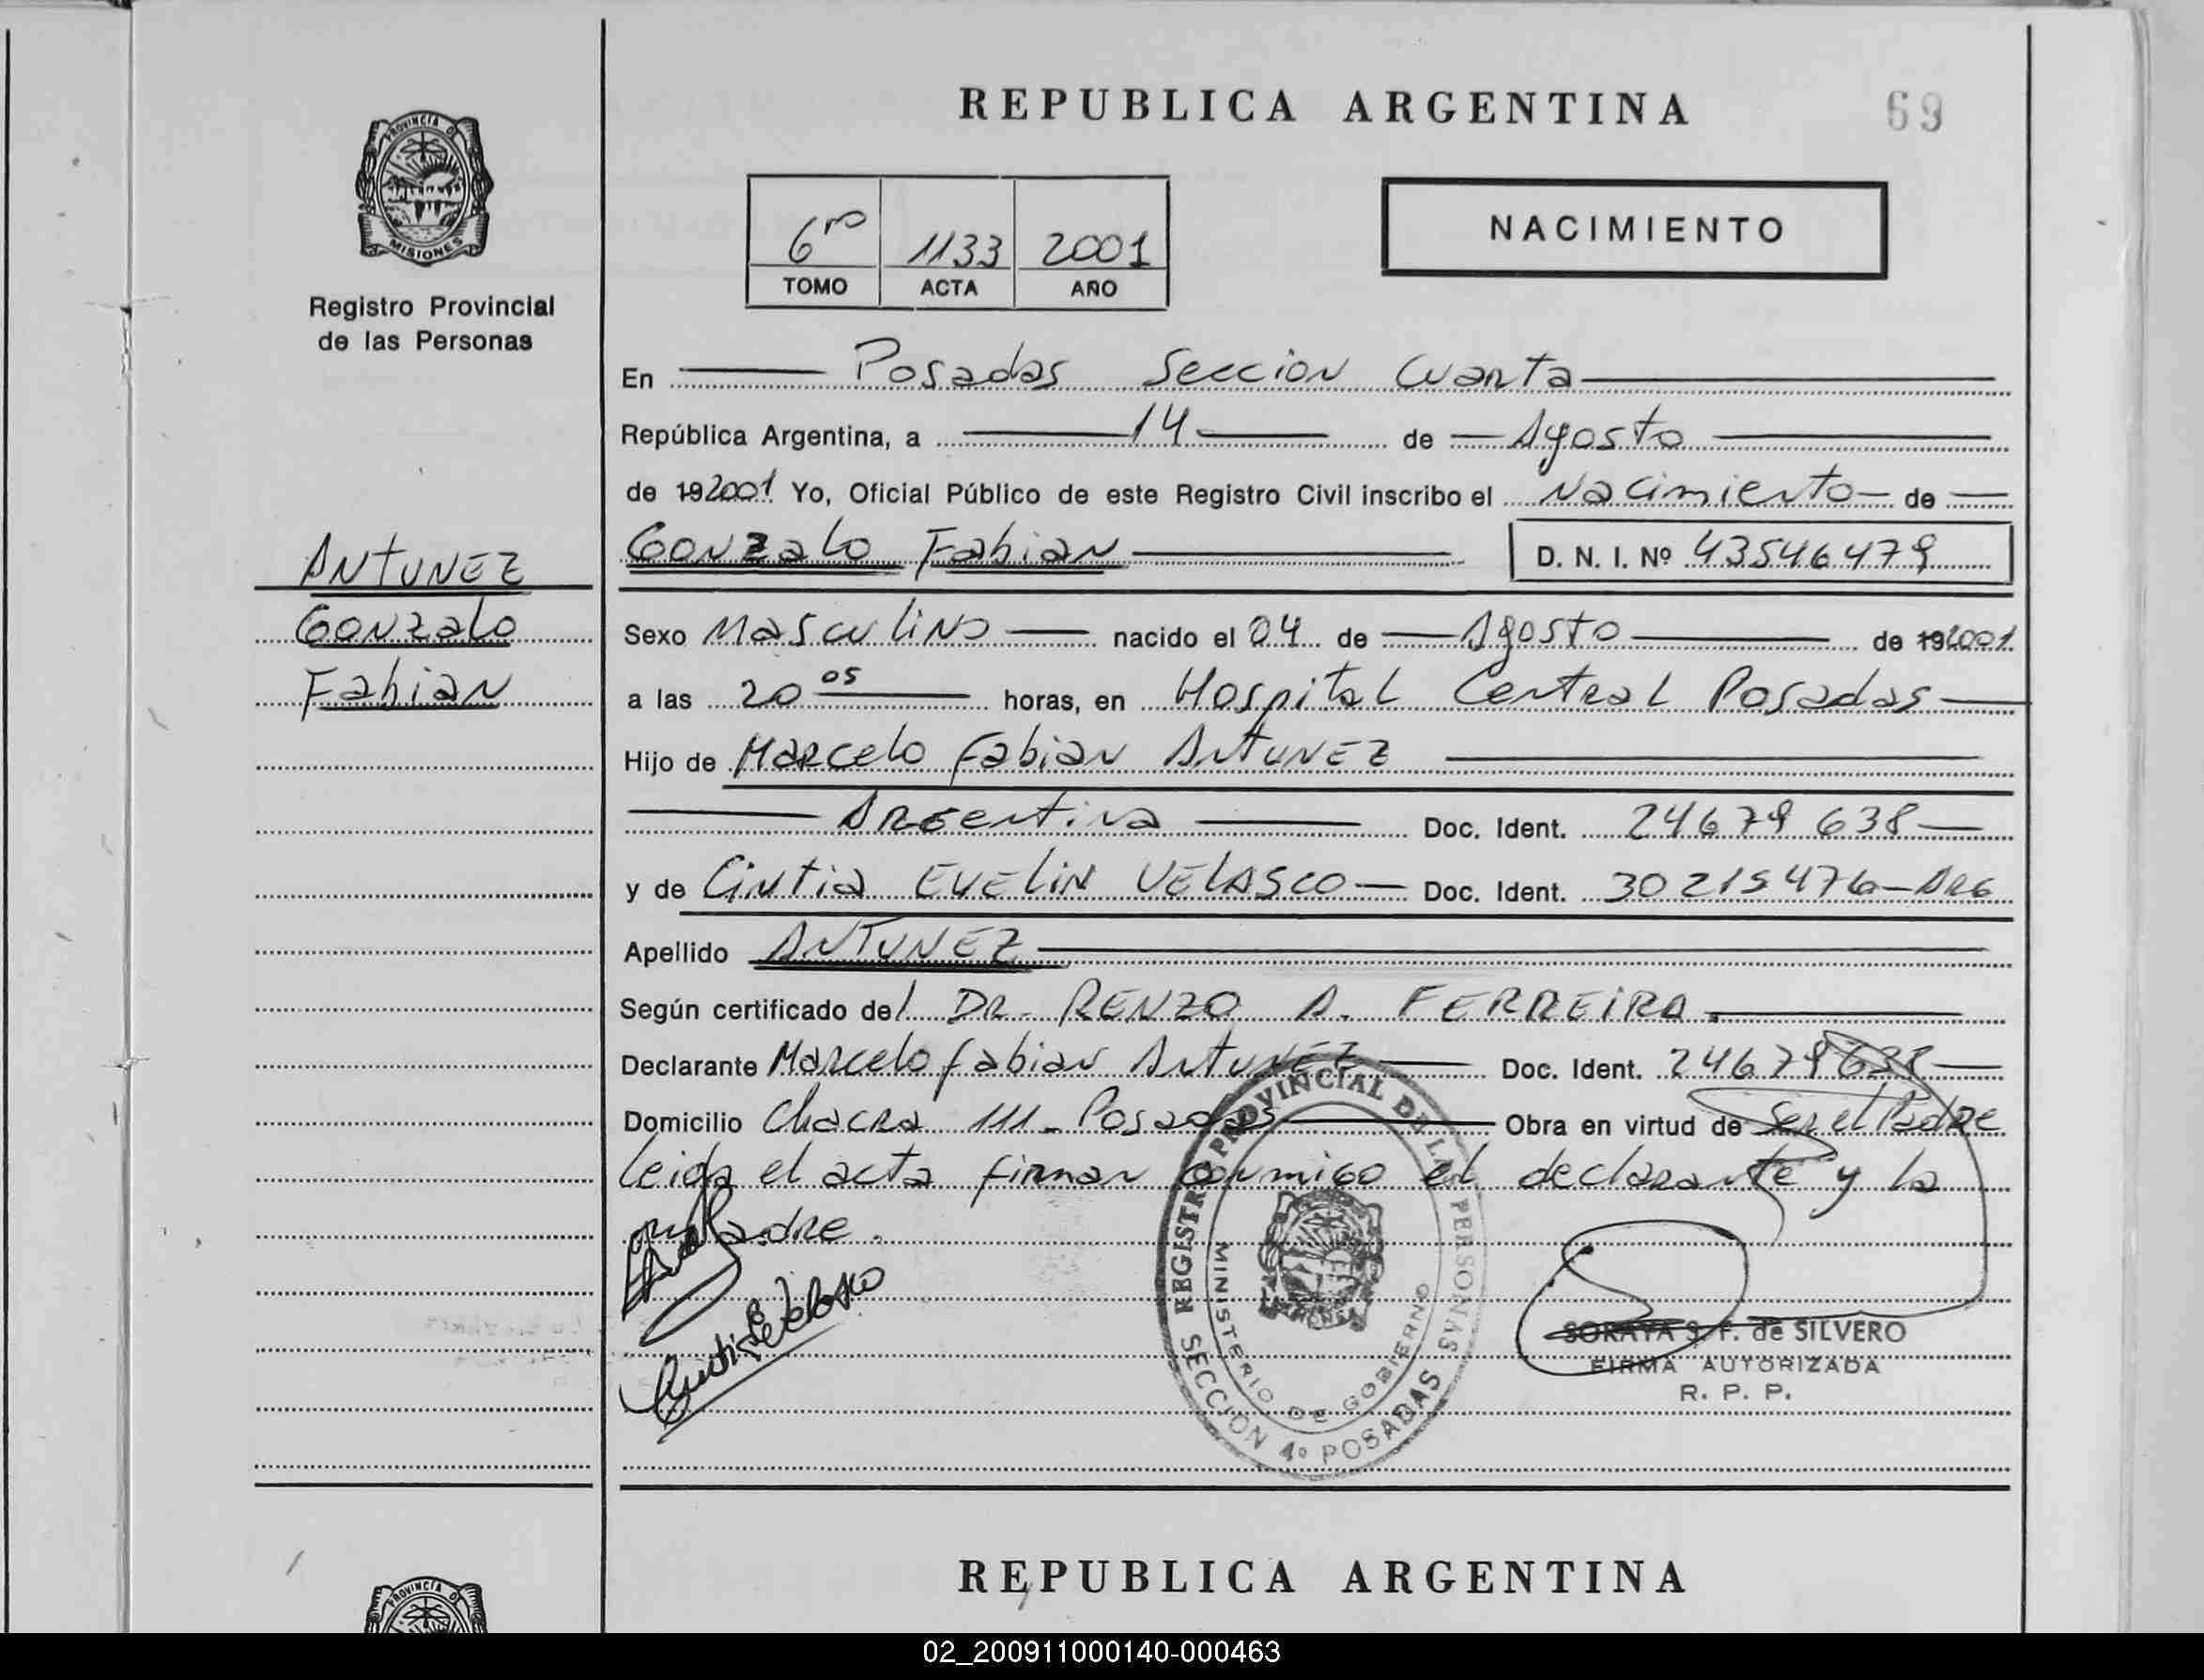 REPUBLICA ARGENTINA
69
PROVINCIA DE
MISIONES
Registro Provincial
de las Personas
6ro 1133 2001
TOMO ACTA AÑO
NACIMIENTO
En Posadas Seccion Cuarta
República Argentina, a 14 de Agosto
de 192001 Yo, Oficial Público de este Registro Civil inscribo el Nacimiento de
ANTUNEZ
Gonzalo
Fabian
Gonzalo Fabian D. N. I. Nº 43546479
Sexo Masculino nacido el 04 de Agosto de 192001
a las 20 05 horas, en Hospital Central Posadas
Hijo de Marcelo Fabian Antunez
Argentina Doc. Ident. 24679638
y de Cintia Evelin Velasco Doc. Ident. 30215476-Arg
Apellido ANTUNEZ
Según certificado del DR. RENZO A. FERREIRA
Declarante Marcelo fabian Antunez Doc. Ident. 24679638
Domicilio Chacra 111 - Posadas Obra en virtud de Ser el Padre
leida el acta firman conmigo el declarante y la
madre.
Cintia E Velasco
REGISTRO PROVINCIAL DE LAS PERSONAS
MINISTERIO DE GOBIERNO
SECCIÓN 4º POSADAS
SORAYA S. F. de SILVERO
FIRMA AUTORIZADA
R. P. P.
REPUBLICA ARGENTINA
PROVINCIA DE
02_200911000140-000463